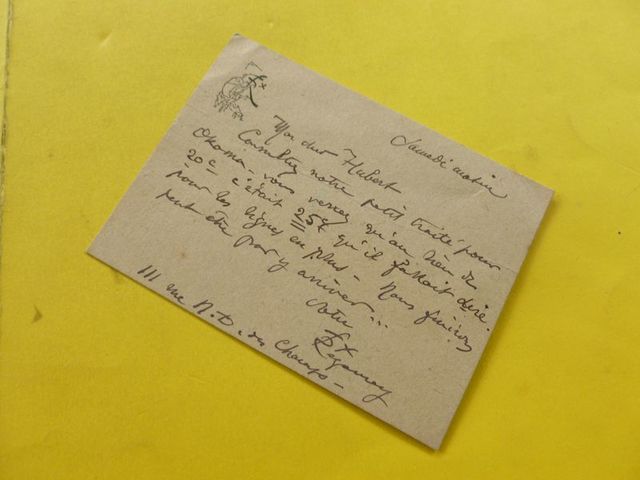 Samedi matin
Mon cher Hubert
Consultez notre petit traité pour
Okoma. vous verrez qu'au lieu de
20c c'était 25c qu'il fallait dire.
pour les lignes en plus - Nous finirons
peut être par y arriver...
Votre
Fx Regamey
111 rue N.D. des Champs -